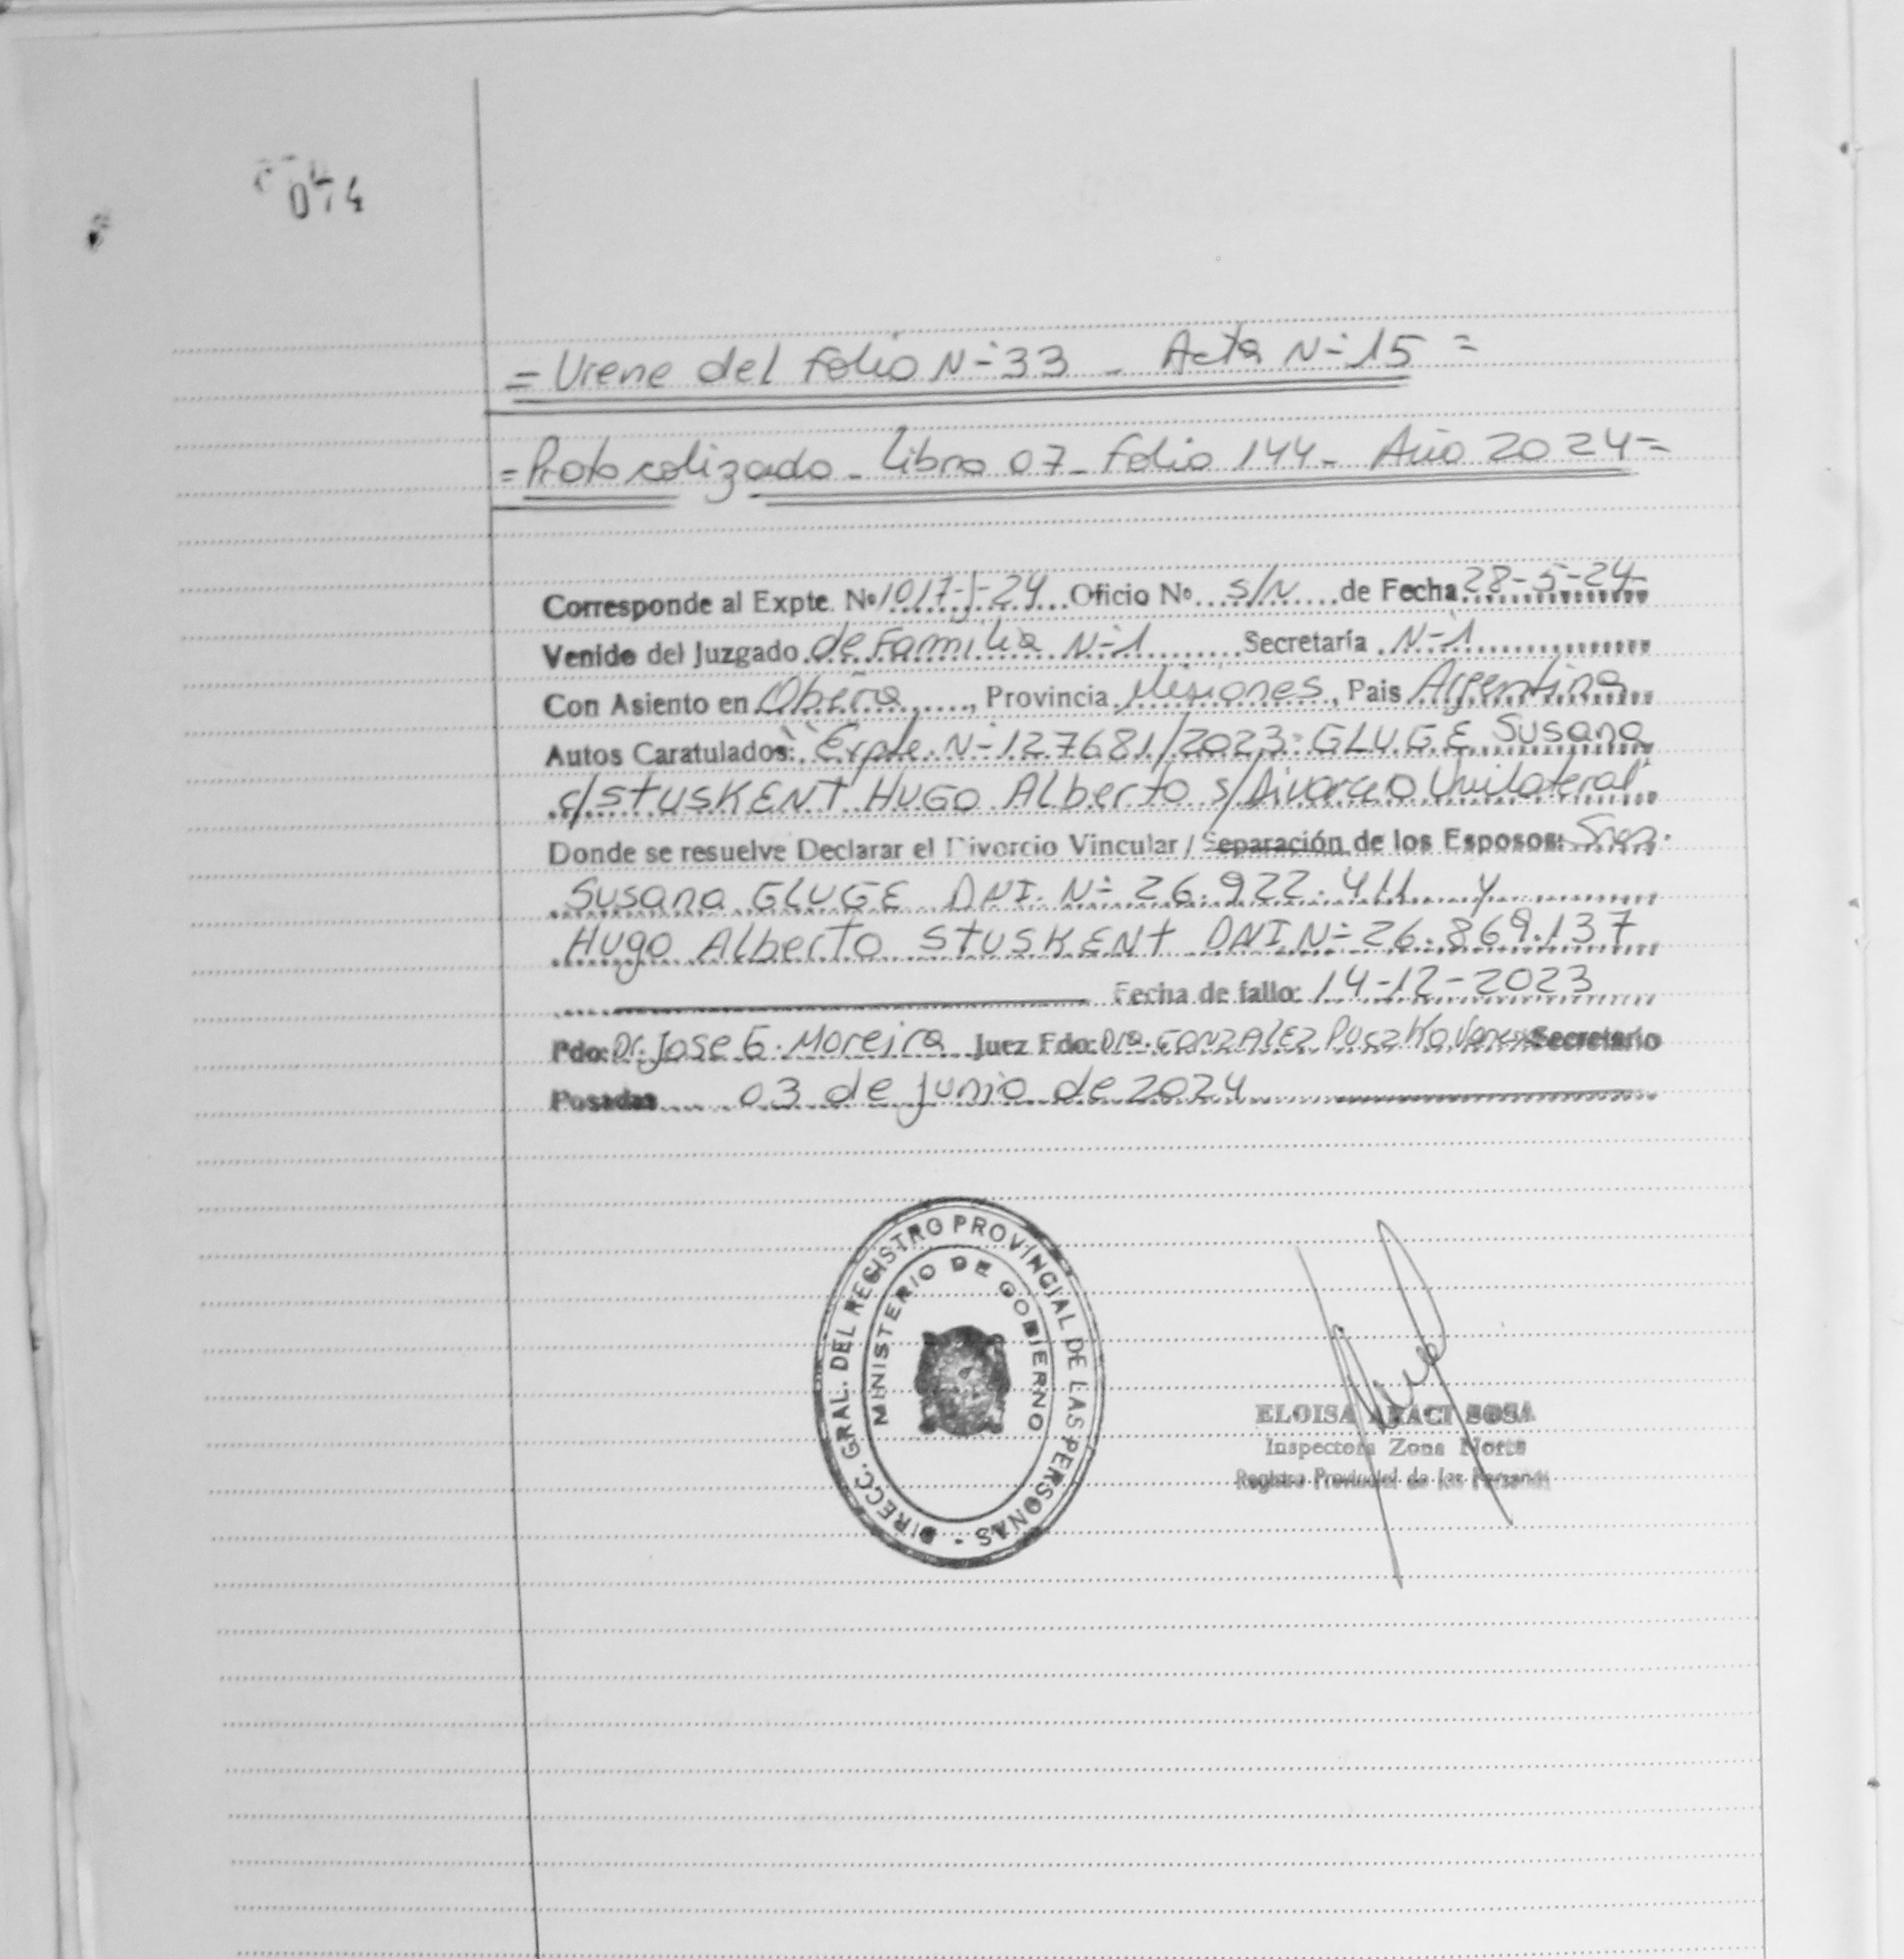 074
= Viene del folio N- 33 - Acta N- 15 =
= Protocolizado - Libro 07 - folio 144 - Año 2024 =
Corresponde al Expte. Nº 1017-J-24 Oficio Nº S/N de Fecha 28-5-24-
Venido del Juzgado de Familia N-1 Secretaría N-1
Con Asiento en Oberá, Provincia Misiones, Pais Argentina
Autos Caratulados: "Expte. N- 127681/2023- GLUGE Susana
c/STUSKENT HUGO Alberto s/Divorcio Unilateral"
Donde se resuelve Declarar el Divorcio Vincular / Separación de los Esposos: Sres.
Susana GLUGE DNI. N- 26.922.411 y
Hugo Alberto STUSKENT DNI N- 26.869.137
Fecha de fallo: 14-12-2023
Fdo: Dr. Jose G. Moreira Juez Fdo: Dra. GONZALEZ Secretario
Posadas 03 de junio de 2024
DIRECC. GRAL. DEL REGISTRO PROVINCIAL DE LAS PERSONAS -
MINISTERIO DE GOBIERNO
ELOISA ARACI SOSA
Inspectora Zona Norte
Registro Provincial de las Personas